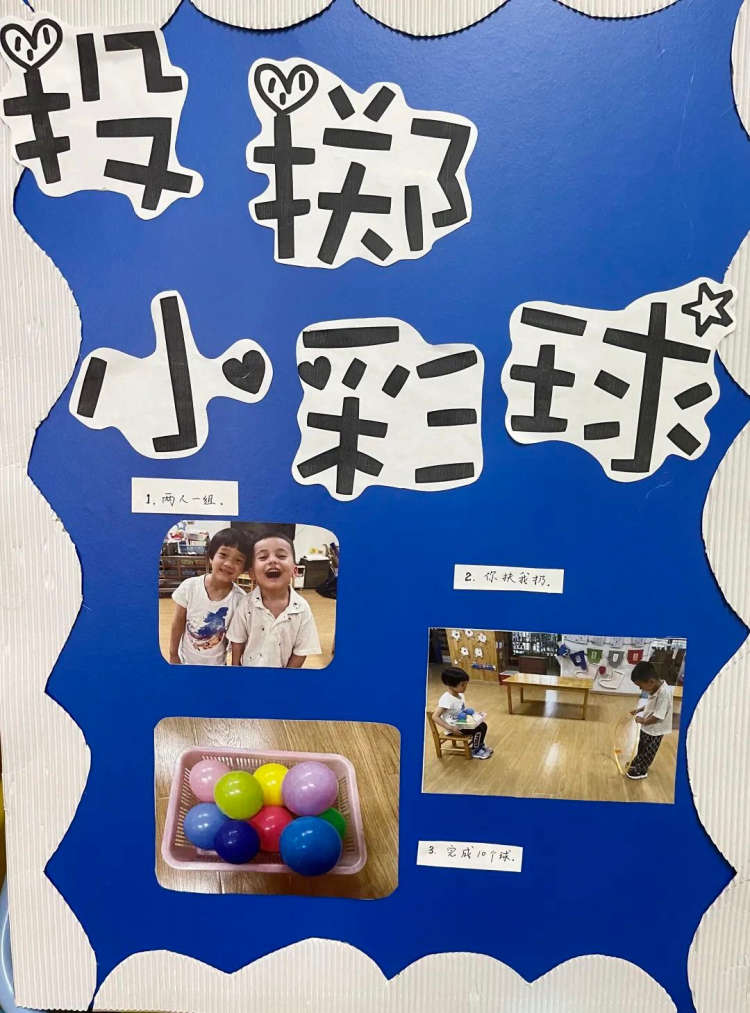 投掷
小彩球
1. 两人一组.
2. 你扶我扔.
3. 完成10个球.